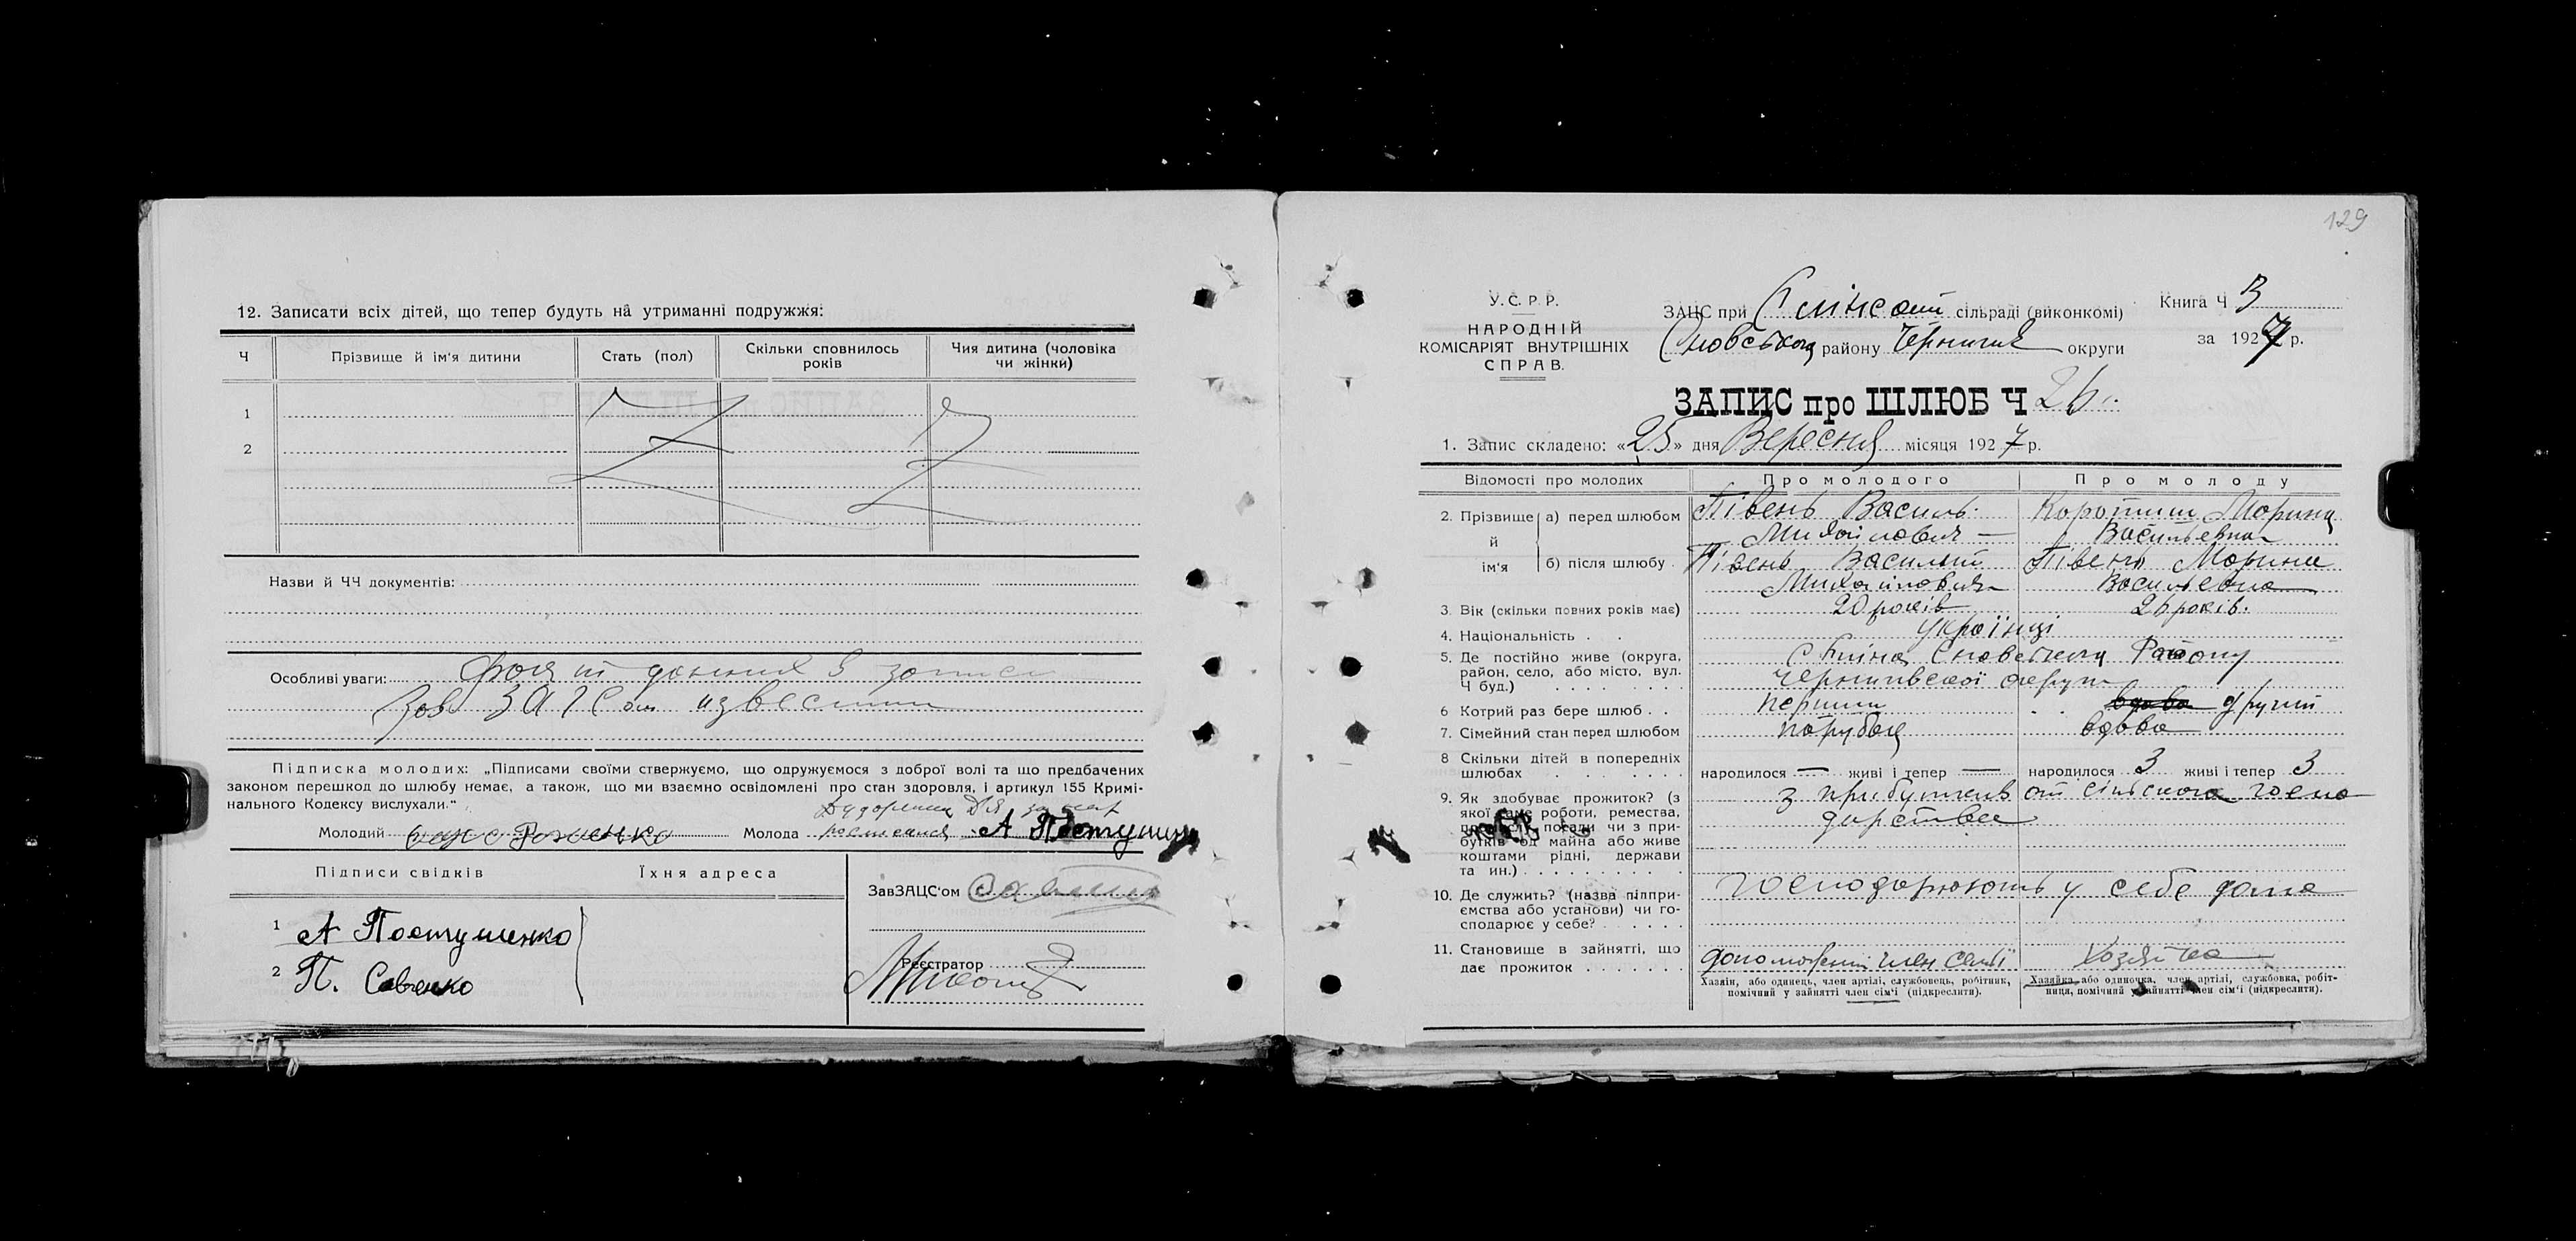 12. Записати всіх дітей, що тепер будуть на утриманні подружжя:
Ч Прізвище й ім'я дитини Стать (пол) Скільки сповнилось років Чия дитина (чоловіка чи жінки)
1
2
Назви й ЧЧ документів:
Особливі уваги:
Зав ЗАГСом
Підписка молодих: „Підписами своїми стверджуємо, що одружуємося з доброї волі та що предбачених
законом перешкод до шлюбу немає, а також, що ми взаємно освідомлені про стан здоровля, і артикул 155 Кримі-
нального Кодексу вислухали."
Молодий Молода А
Підписи свідків Їхня адреса
ЗавЗАЦС'ом
1 А Постушенко
2 П. Савченко
Реєстратор
129
У.С.Р.Р.
НАРОДНІЙ
КОМІСАРІЯТ ВНУТРІШНІХ
СПРАВ.
ЗАЦС при сільраді (виконкомі)
Сновського району Черниги округи
Книга Ч 3
за 1927 р.
ЗАПИС про ШЛЮБ Ч 26
1. Запис складено: «25» дня Вересня місяця 1927 р.
Відомості про молодих Про молодого Про молоду
2. Прізвище й ім'я а) перед шлюбом Півень Василь Коротиш Морина
Михайлович Васильевна
б) після шлюбу Півень Василий Півень Морина
Михайлович Васильевна
3. Вік (скільки повних років має) 20 років 26 років.
4. Національність Українці
5. Де постійно живе (округа, район, село, або місто, вул. Ч буд.) Сновського Району
Чернигівської округи
6 Котрий раз бере шлюб перший вдова другий
7. Сімейний стан перед шлюбом парубок вдова
8 Скільки дітей в попередніх шлюбах народилося — живі і тепер — народилося 3 живі і тепер 3
9. Як здобуває прожиток? (з якої саме роботи, ремества, промыслів, посади чи з прибутків од майна або живе коштами рідні, держави та ин.) з прибутків от сільського госпо
дарства
10. Де служить? (назва підпри-ємства або установи) чи го-сподарює у себе? господарюють у себе дома
11. Становище в зайнятті, що дає прожиток допоможний член семї Хозяйка
Хазяїн, або одинець, член артілі, службовець, робітник, помічний у зайнятті член сім'ї (підкреслити).
Хазяйка або одиночка, член артілі, службовка, робіт-ниця, помічний у зайнятті член сім'ї (підкреслити).